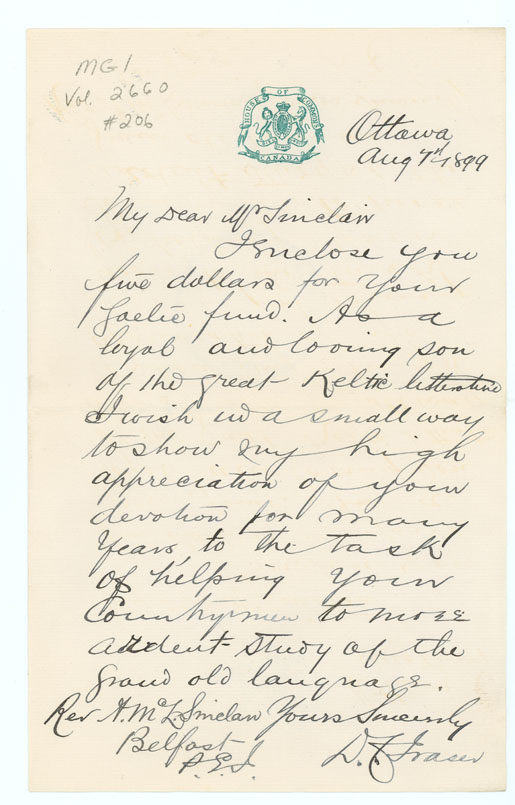 MG1
Vol. 2660
#206
HOUSE OF COMMONS
CANADA
Ottawa
Aug 7th 1899
My Dear Mr Sinclair
I Enclose you
five dollars for your
Gaelic fund. As a
loyal and loving son
of the great Keltic litterature
I wish in a small way
to show my high
appreciation of your
devotion for many
years, to the task
of helping your
Countrymen to more
ardent study of the
grand old language.
Rev A. McL Sinclair Yours Sincerely
Belfast
P.E.I. D. C. Fraser